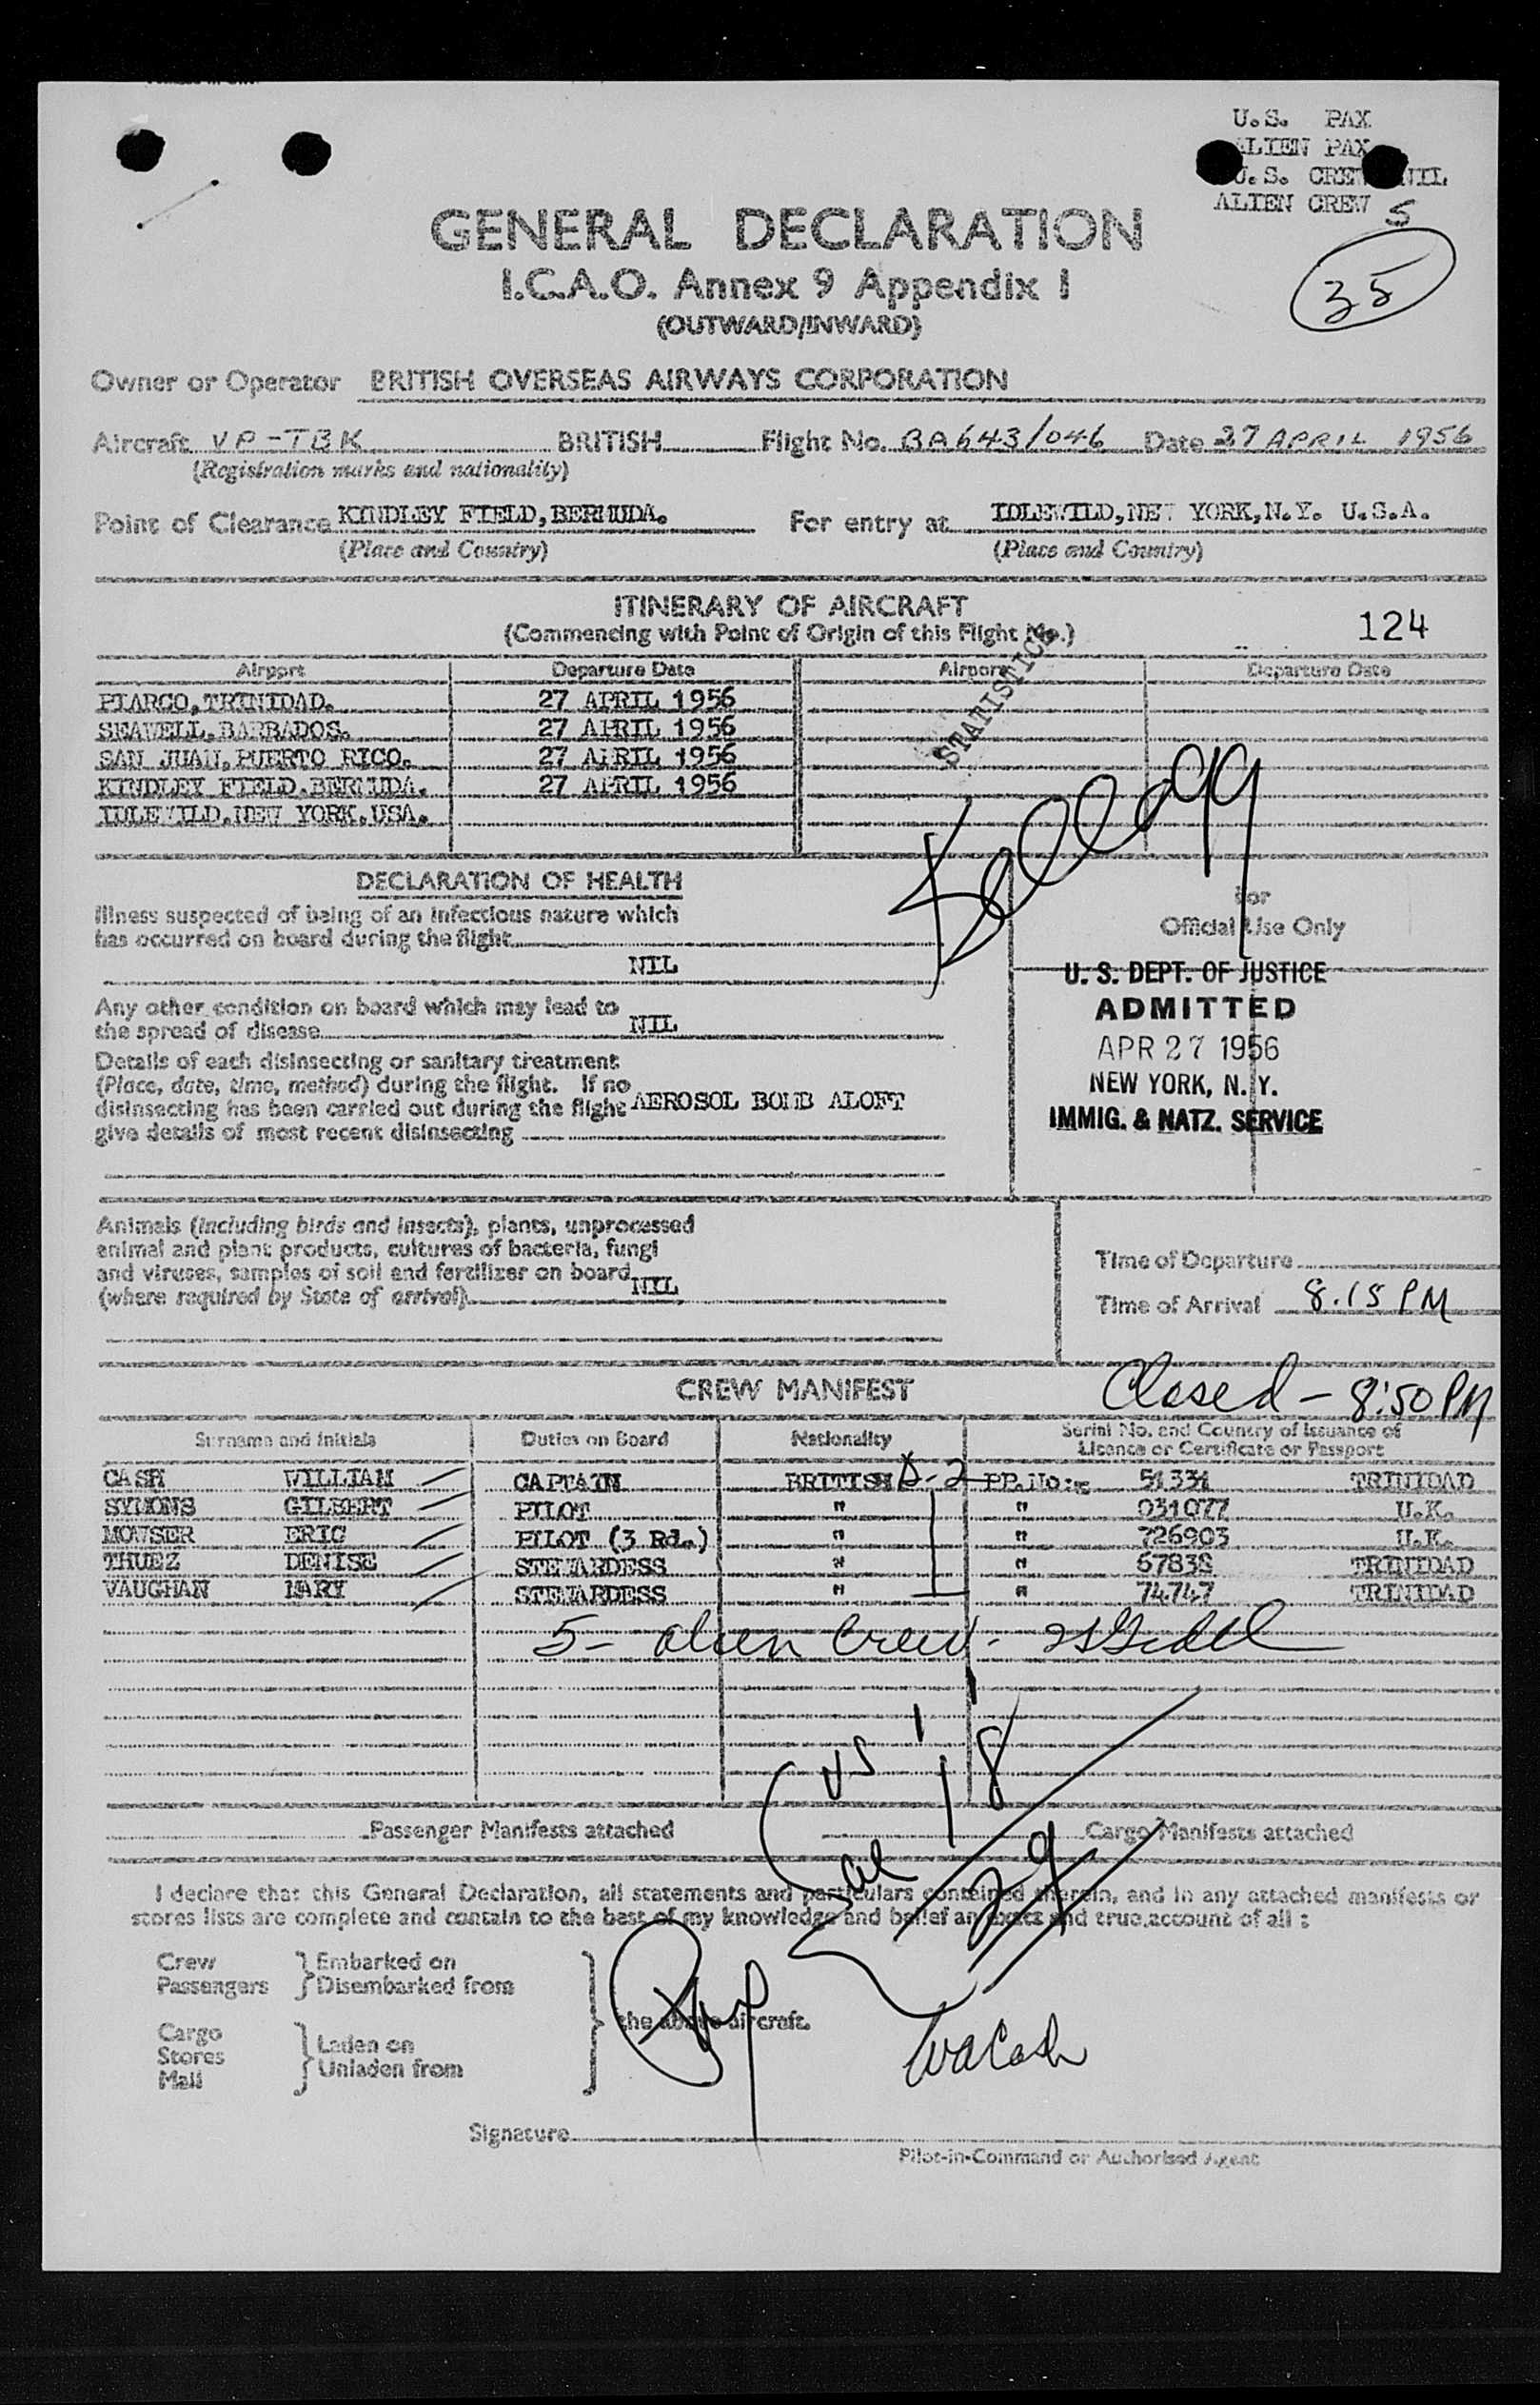 U.S. PAX
ALIEN PAX
U.S. CREW NIL
ALIEN CREW 5
35
GENERAL DECLARATION
I.C.A.O. Annex 9 Appendix I
(OUTWARD/INWARD)
Owner or Operator BRITISH OVERSEAS AIRWAYS CORPORATION
Aircraft VP-TBK BRITISH Flight No. BA643/046 Date 27 APRIL 1956
(Registration marks and nationality)
Point of Clearance KINDLEY FIELD, BERMUDA. For entry at IDLEWILD, NEW YORK, N.Y. U.S.A.
(Place and Country) (Place and Country)
ITINERARY OF AIRCRAFT
(Commencing with Point of Origin of this Flight No.)
124
Airport Departure Date Airport Departure Date
PIARCO, TRINIDAD. 27 APRIL 1956
SEAWELL, BARBADOS. 27 APRIL 1956
SAN JUAN, PUERTO RICO. 27 APRIL 1956
KINDLEY FIELD, BERMUDA. 27 APRIL 1956
IDLEWILD, NEW YORK, USA.
STATISTICS
Kellogg
DECLARATION OF HEALTH
Illness suspected of being of an infectious nature which
has occurred on board during the flight
NIL
Any other condition on board which may lead to
the spread of disease NIL
Details of each disinsecting or sanitary treatment
(Place, date, time, method) during the flight. If no
disinsecting has been carried out during the flight AEROSOL BOMB ALOFT
give details of most recent disinsecting
For
Official Use Only
U. S. DEPT. OF JUSTICE
ADMITTED
APR 27 1956
NEW YORK, N. Y.
IMMIG. & NATZ. SERVICE
Animals (including birds and insects), plants, unprocessed
animal and plant products, cultures of bacteria, fungi
and viruses, samples of soil and fertilizer on board
(where required by State of arrival) NIL
Time of Departure
Time of Arrival 8.15 PM
CREW MANIFEST
Closed - 8:50 PM
Surname and Initials Duties on Board Nationality Serial No. and Country of Issuance of
Licence or Certificate or Passport
CASH WILLIAM CAPTAIN BRITISH D-2 PP.No:- 51331 TRINIDAD
SYMONS GILBERT PILOT " " 031077 U.K.
MOWSER ERIC PILOT (3 Rd.) " " 726903 U.K.
THUEZ DENISE STEWARDESS " " 67838 TRINIDAD
VAUGHAN MARY STEWARDESS " " 74747 TRINIDAD
5- alien crew
US 18
29
Passenger Manifests attached Cargo Manifests attached
I declare that this General Declaration, all statements and particulars contained therein, and in any attached manifests or
stores lists are complete and contain to the best of my knowledge and belief an exact and true account of all :
Crew Embarked on
Passengers Disembarked from
the above aircraft.
Cargo
Stores Laden on
Mail Unladen from
WACash
Signature
Pilot-in-Command or Authorised Agent